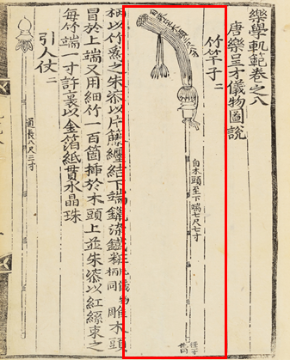 樂學軌範卷之八
唐樂呈才儀物圖說
竹竿子二
自木頭至下端七尺七寸
柄以竹爲之朱漆以片藤纏結下端鑞染鐵粧
雕木頭
冒於上端又用細竹一百箇揷於木頭上並朱漆以紅絲束之
每竹端一寸許裹以金箔紙貫水晶珠
引人仗二